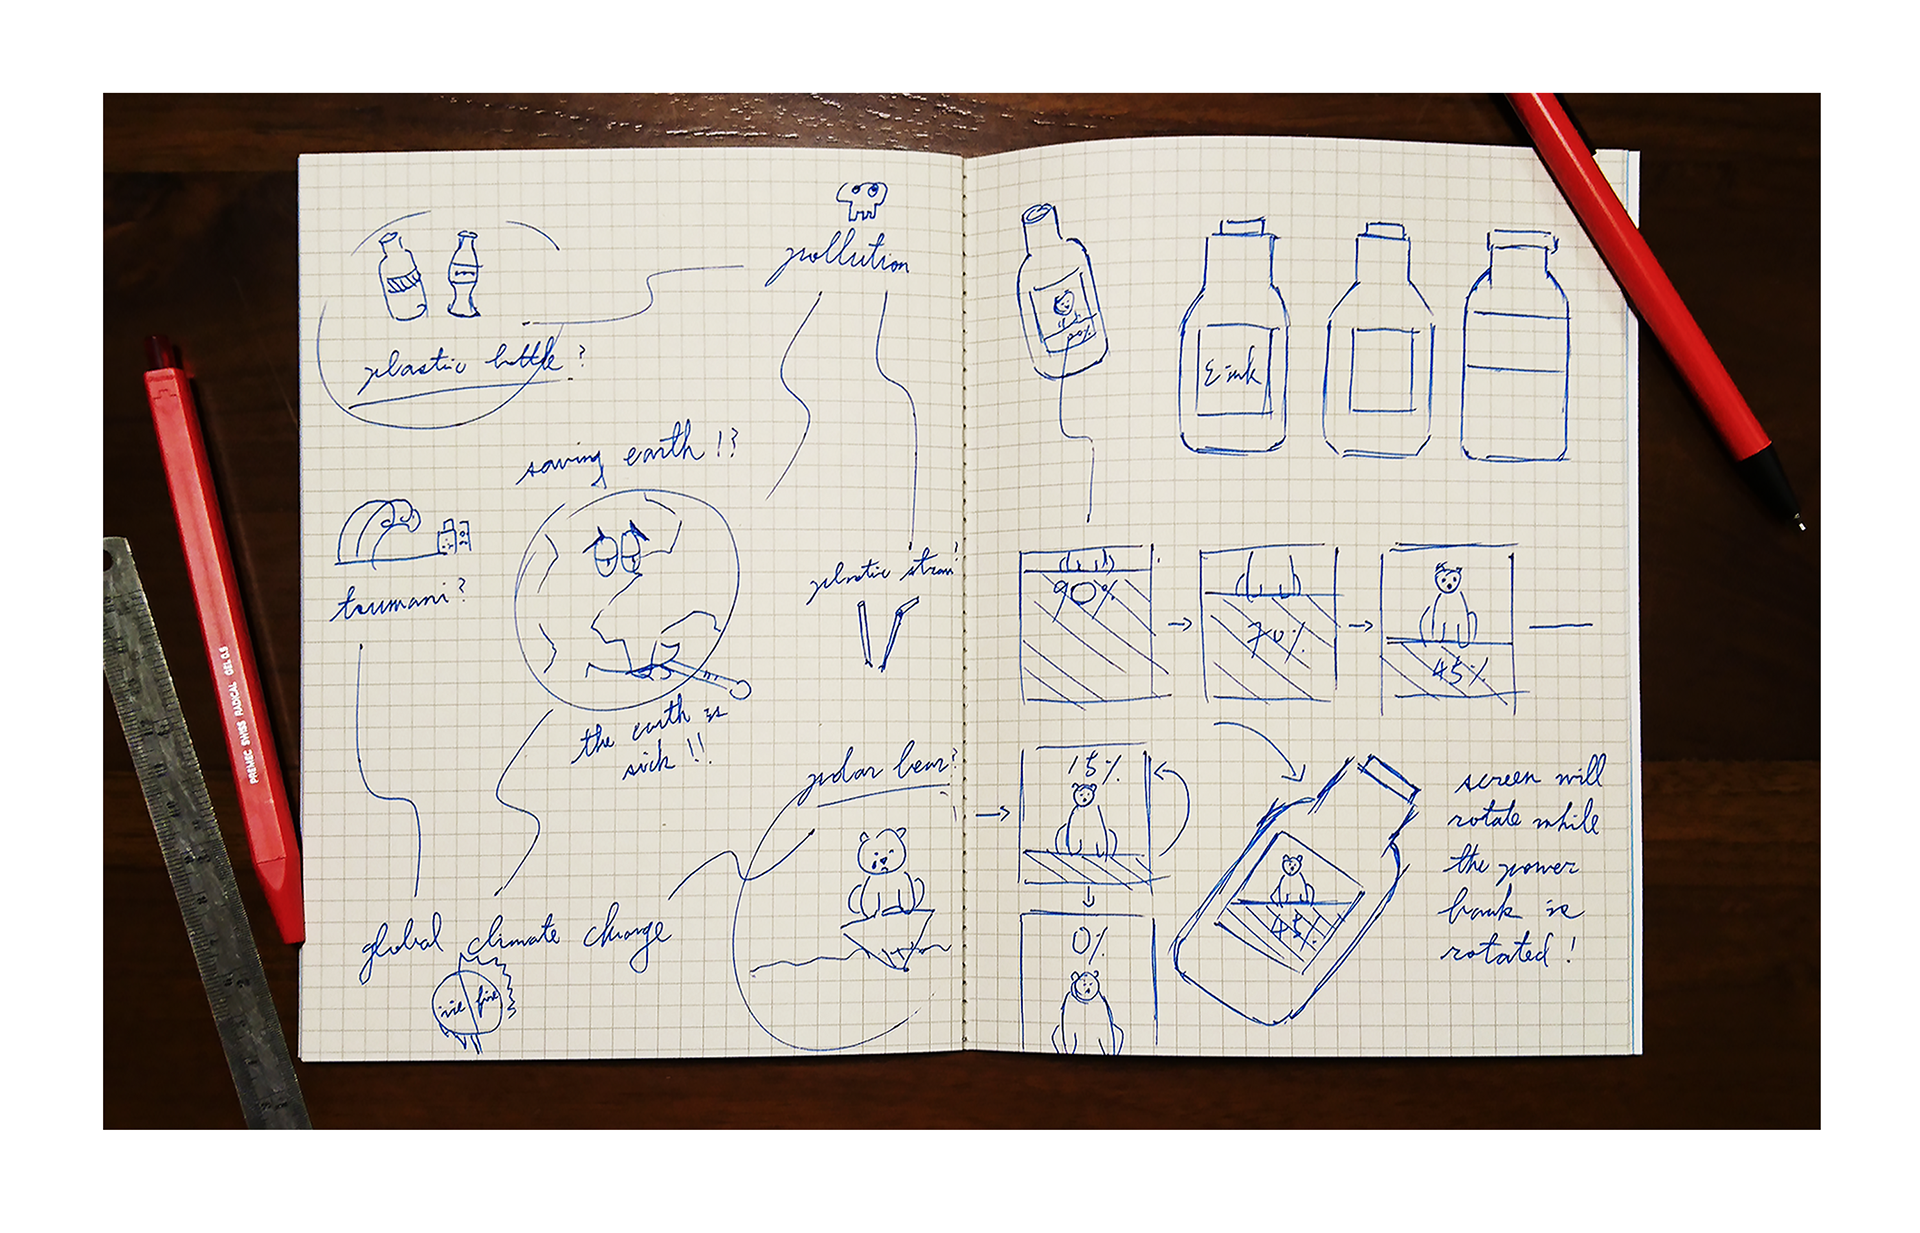 pollution
plastic bottle?
saving earth!?
tsumani?
plastic straw?
the earth is
sick!!
polar bear?
global climate change
ice fire
PREMEC SWISS RADICAL GEL 0.5
20%
E-ink
90%
70%
45%
15%
0%
45%
screen will
rotate while
the power
bank is
rotated!